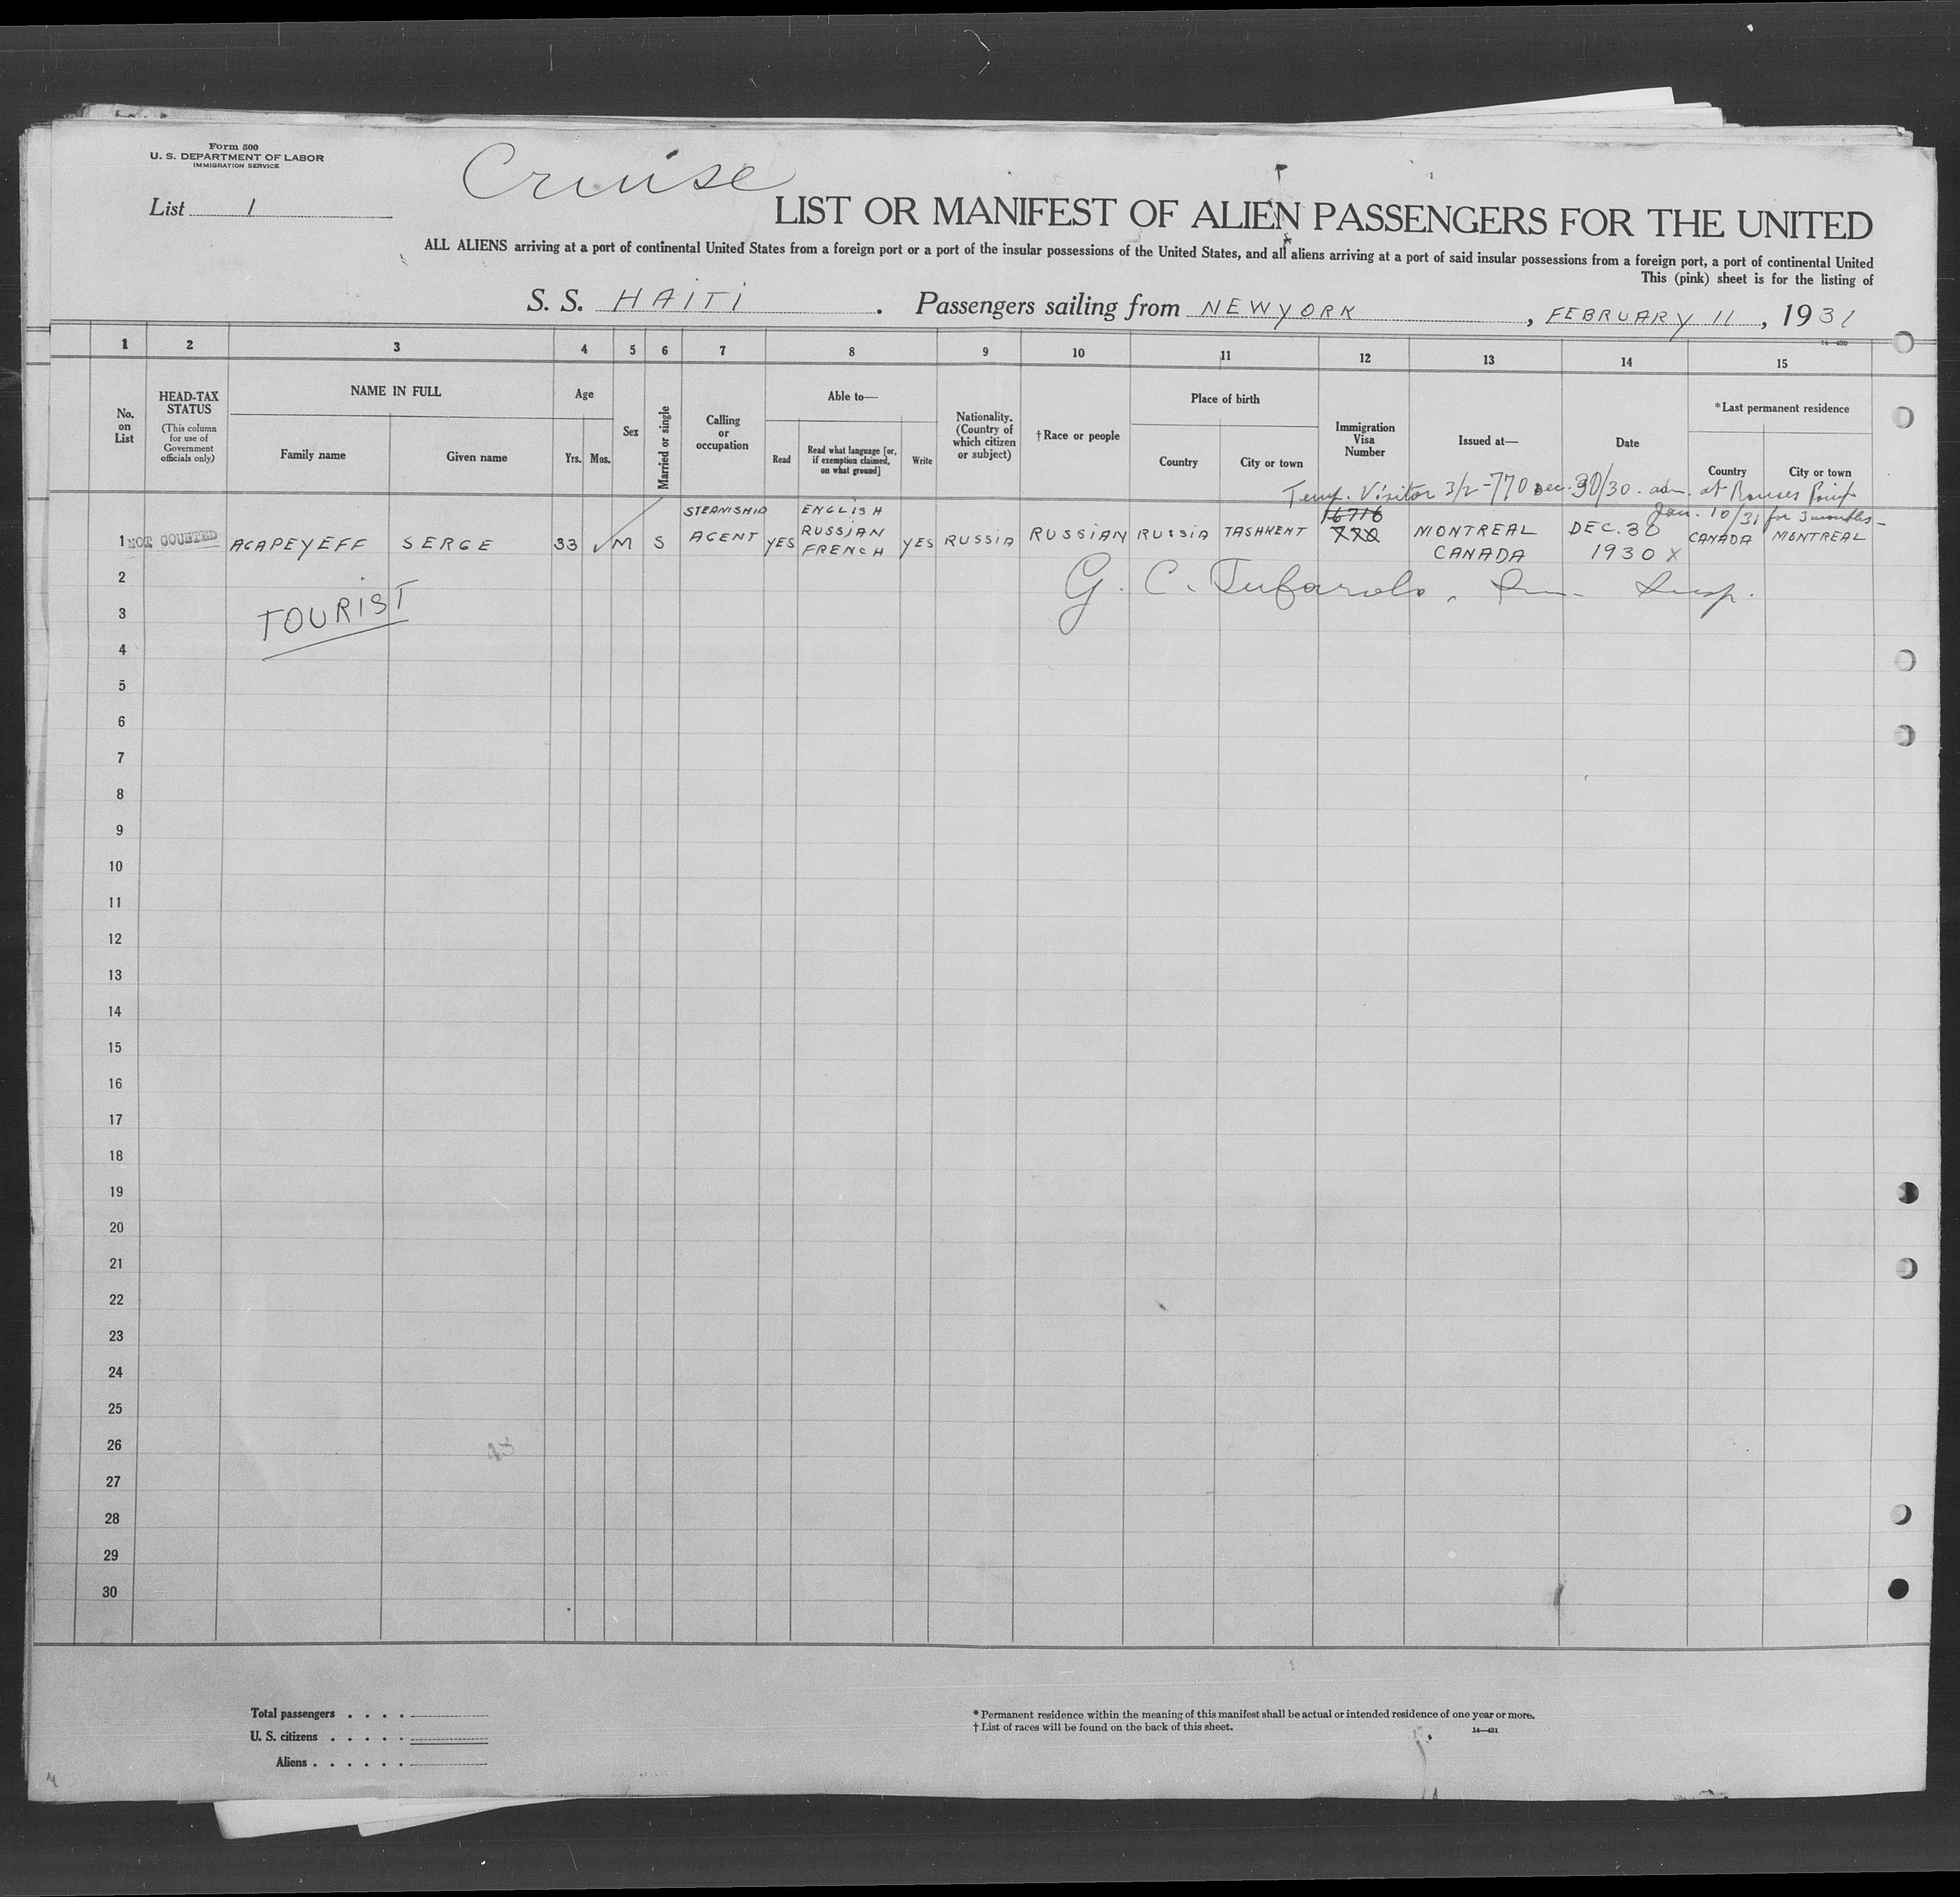 Form 500
U. S. DEPARTMENT OF LABOR
IMMIGRATION SERVICE
Cruise
List 1
LIST OR MANIFEST OF ALIEN PASSENGERS FOR THE UNITED
ALL ALIENS arriving at a port of continental United States from a foreign port or a port of the insular possessions of the United States, and all aliens arriving at a port of said insular possessions from a foreign port, a port of continental United
This (pink) sheet is for the listing of
S. S. HAITI . Passengers sailing from NEW YORK , FEBRUARY 11 , 1931
14—430
1 2 3 4 5 6 7 8 9 10 11 12 13 14 15
No. on List
HEAD-TAX STATUS
(This column for use of Government officials only)
NAME IN FULL
Family name Given name
Age
Yrs. Mos.
Sex
Married or single
Calling or occupation
Able to—
Read Read what language [or, if exemption claimed, on what ground] Write
Nationality. (Country of which citizen or subject)
†Race or people
Place of birth
Country City or town
Immigration Visa Number
Issued at—
Date
*Last permanent residence
Country City or town
Temp. Visitor 3/2-770 Dec. 30/30. adm. at Rouses Point
Jan. 10/31 for 3 months-
1 NOT COUNTED AGAPEYEFF SERGE 33 ✓ M S STEAMSHIP AGENT YES ENGLISH RUSSIAN FRENCH YES RUSSIA RUSSIAN RUSSIA TASHKENT 16716 770 MONTREAL CANADA DEC. 30 1930 X CANADA MONTREAL
2
G. C. Imm. Insp.
3 TOURIST
4
5
6
7
8
9
10
11
12
13
14
15
16
17
18
19
20
21
22
23
24
25
26
27
28
29
30
Total passengers . . . .
U. S. citizens . . . . .
Aliens . . . . . .
* Permanent residence within the meaning of this manifest shall be actual or intended residence of one year or more.
† List of races will be found on the back of this sheet.
14—431